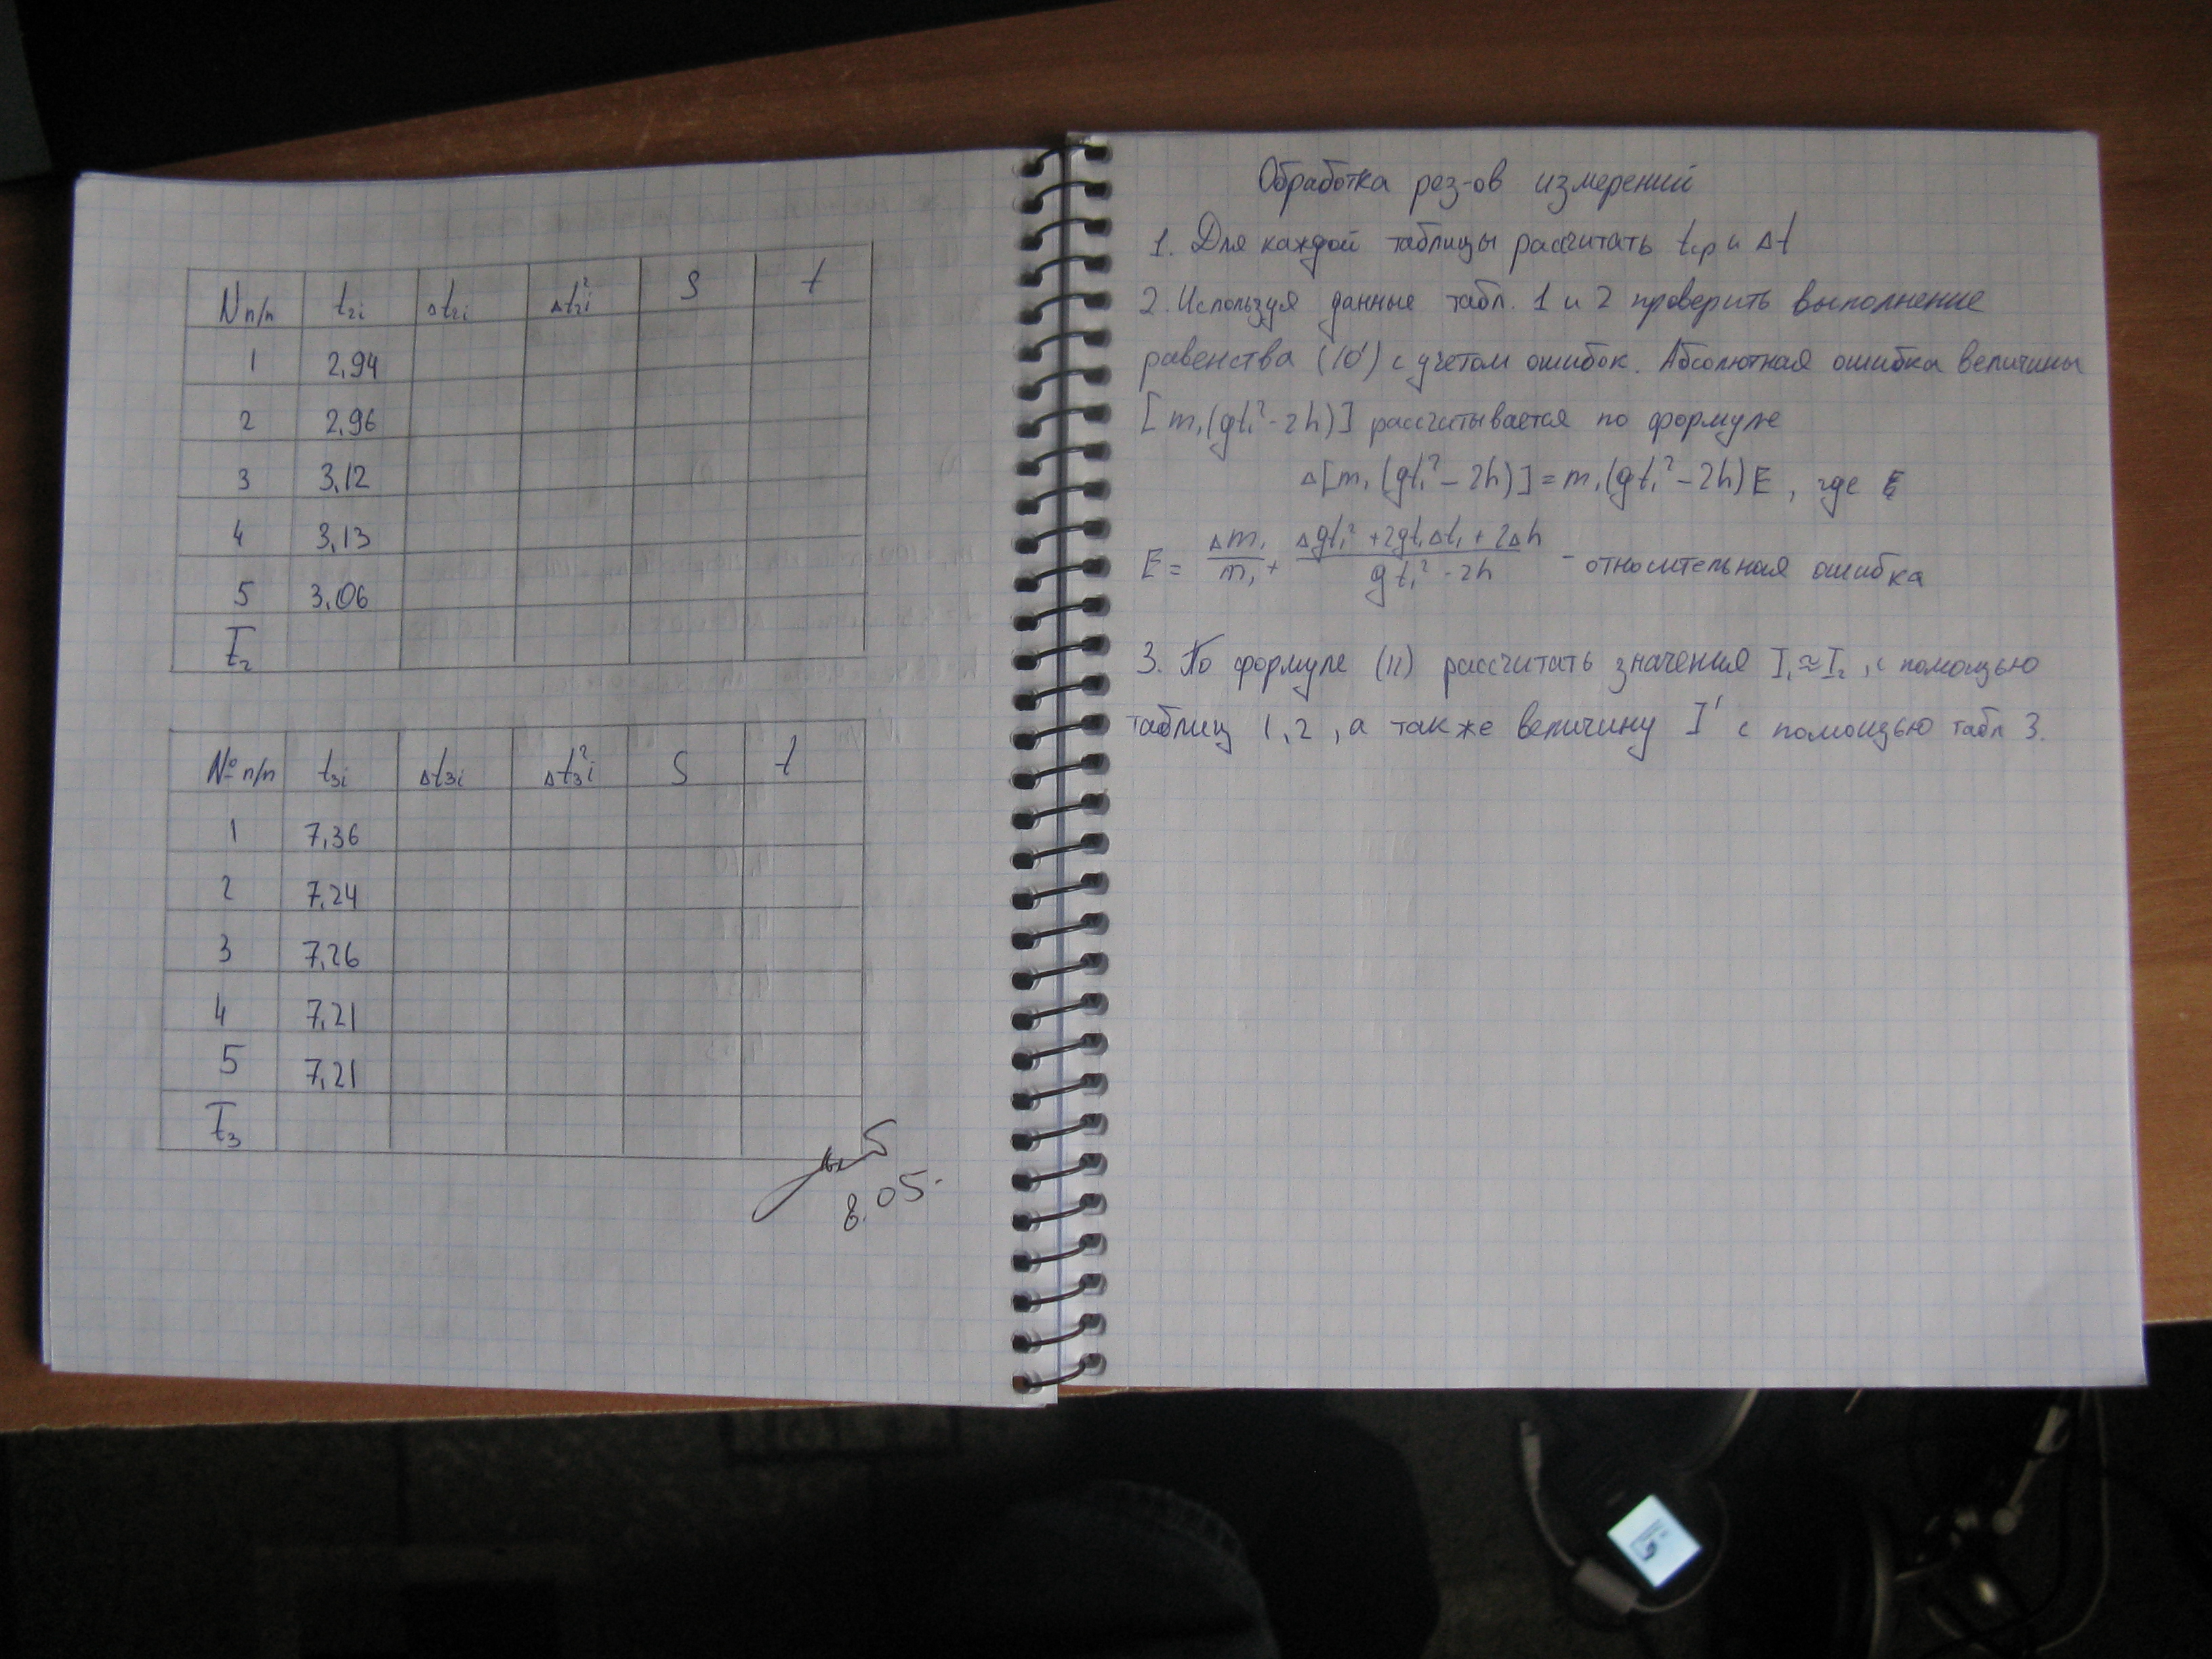 N п/п t₂ᵢ Δt₂ᵢ Δt₂²ᵢ S t
1 2,94
2 2,96
3 3,12
4 3,13
5 3,06
t̅₂
№ п/п t₃ᵢ Δt₃ᵢ Δt₃²ᵢ S t
1 7,36
2 7,24
3 7,26
4 7,21
5 7,21
t̅₃
8.05.
Обработка рез-ов измерений
1. Для каждой таблицы рассчитать tср и Δt
2. Используя данные табл. 1 и 2 проверить выполнение
равенства (10') с учетом ошибок. Абсолютная ошибка величины
[m₁(gt₁²-2h)] рассчитывается по формуле
Δ[m₁(gt₁²-2h)]=m₁(gt₁²-2h)E, где E
E = Δm₁/m₁ + (Δgt₁²+2gt₁Δt₁+2Δh)/(gt₁²-2h) - относительная ошибка
3. По формуле (11) рассчитать значения I₁≈I₂, с помощью
таблиц 1,2, а также величину I' с помощью табл 3.